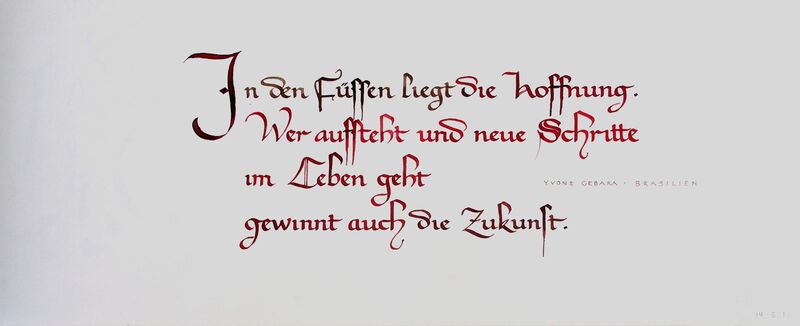 In den Füssen liegt die Hoffnung.
Wer aufsteht und neue Schritte
im Leben geht
YVONE GEBARA · BRASILIEN
gewinnt auch die Zukunft.